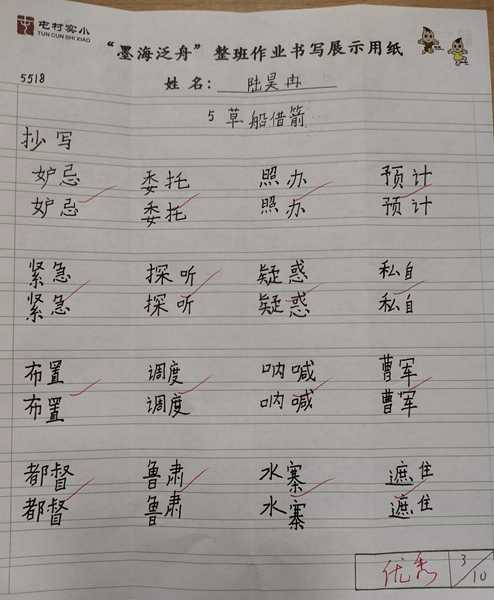 屯村实小
TUN CUN SHI XIAO
“墨海泛舟”整班作业书写展示用纸
5518
姓名：陆昊冉
5 草船借箭
抄写
妒忌 委托 照办 预计
妒忌 委托 照办 预计
紧急 探听 疑惑 私自
紧急 探听 疑惑 私自
布置 调度 呐喊 曹军
布置 调度 呐喊 曹军
都督 鲁肃 水寨 遮住
都督 鲁肃 水寨 遮住
优秀 3/10